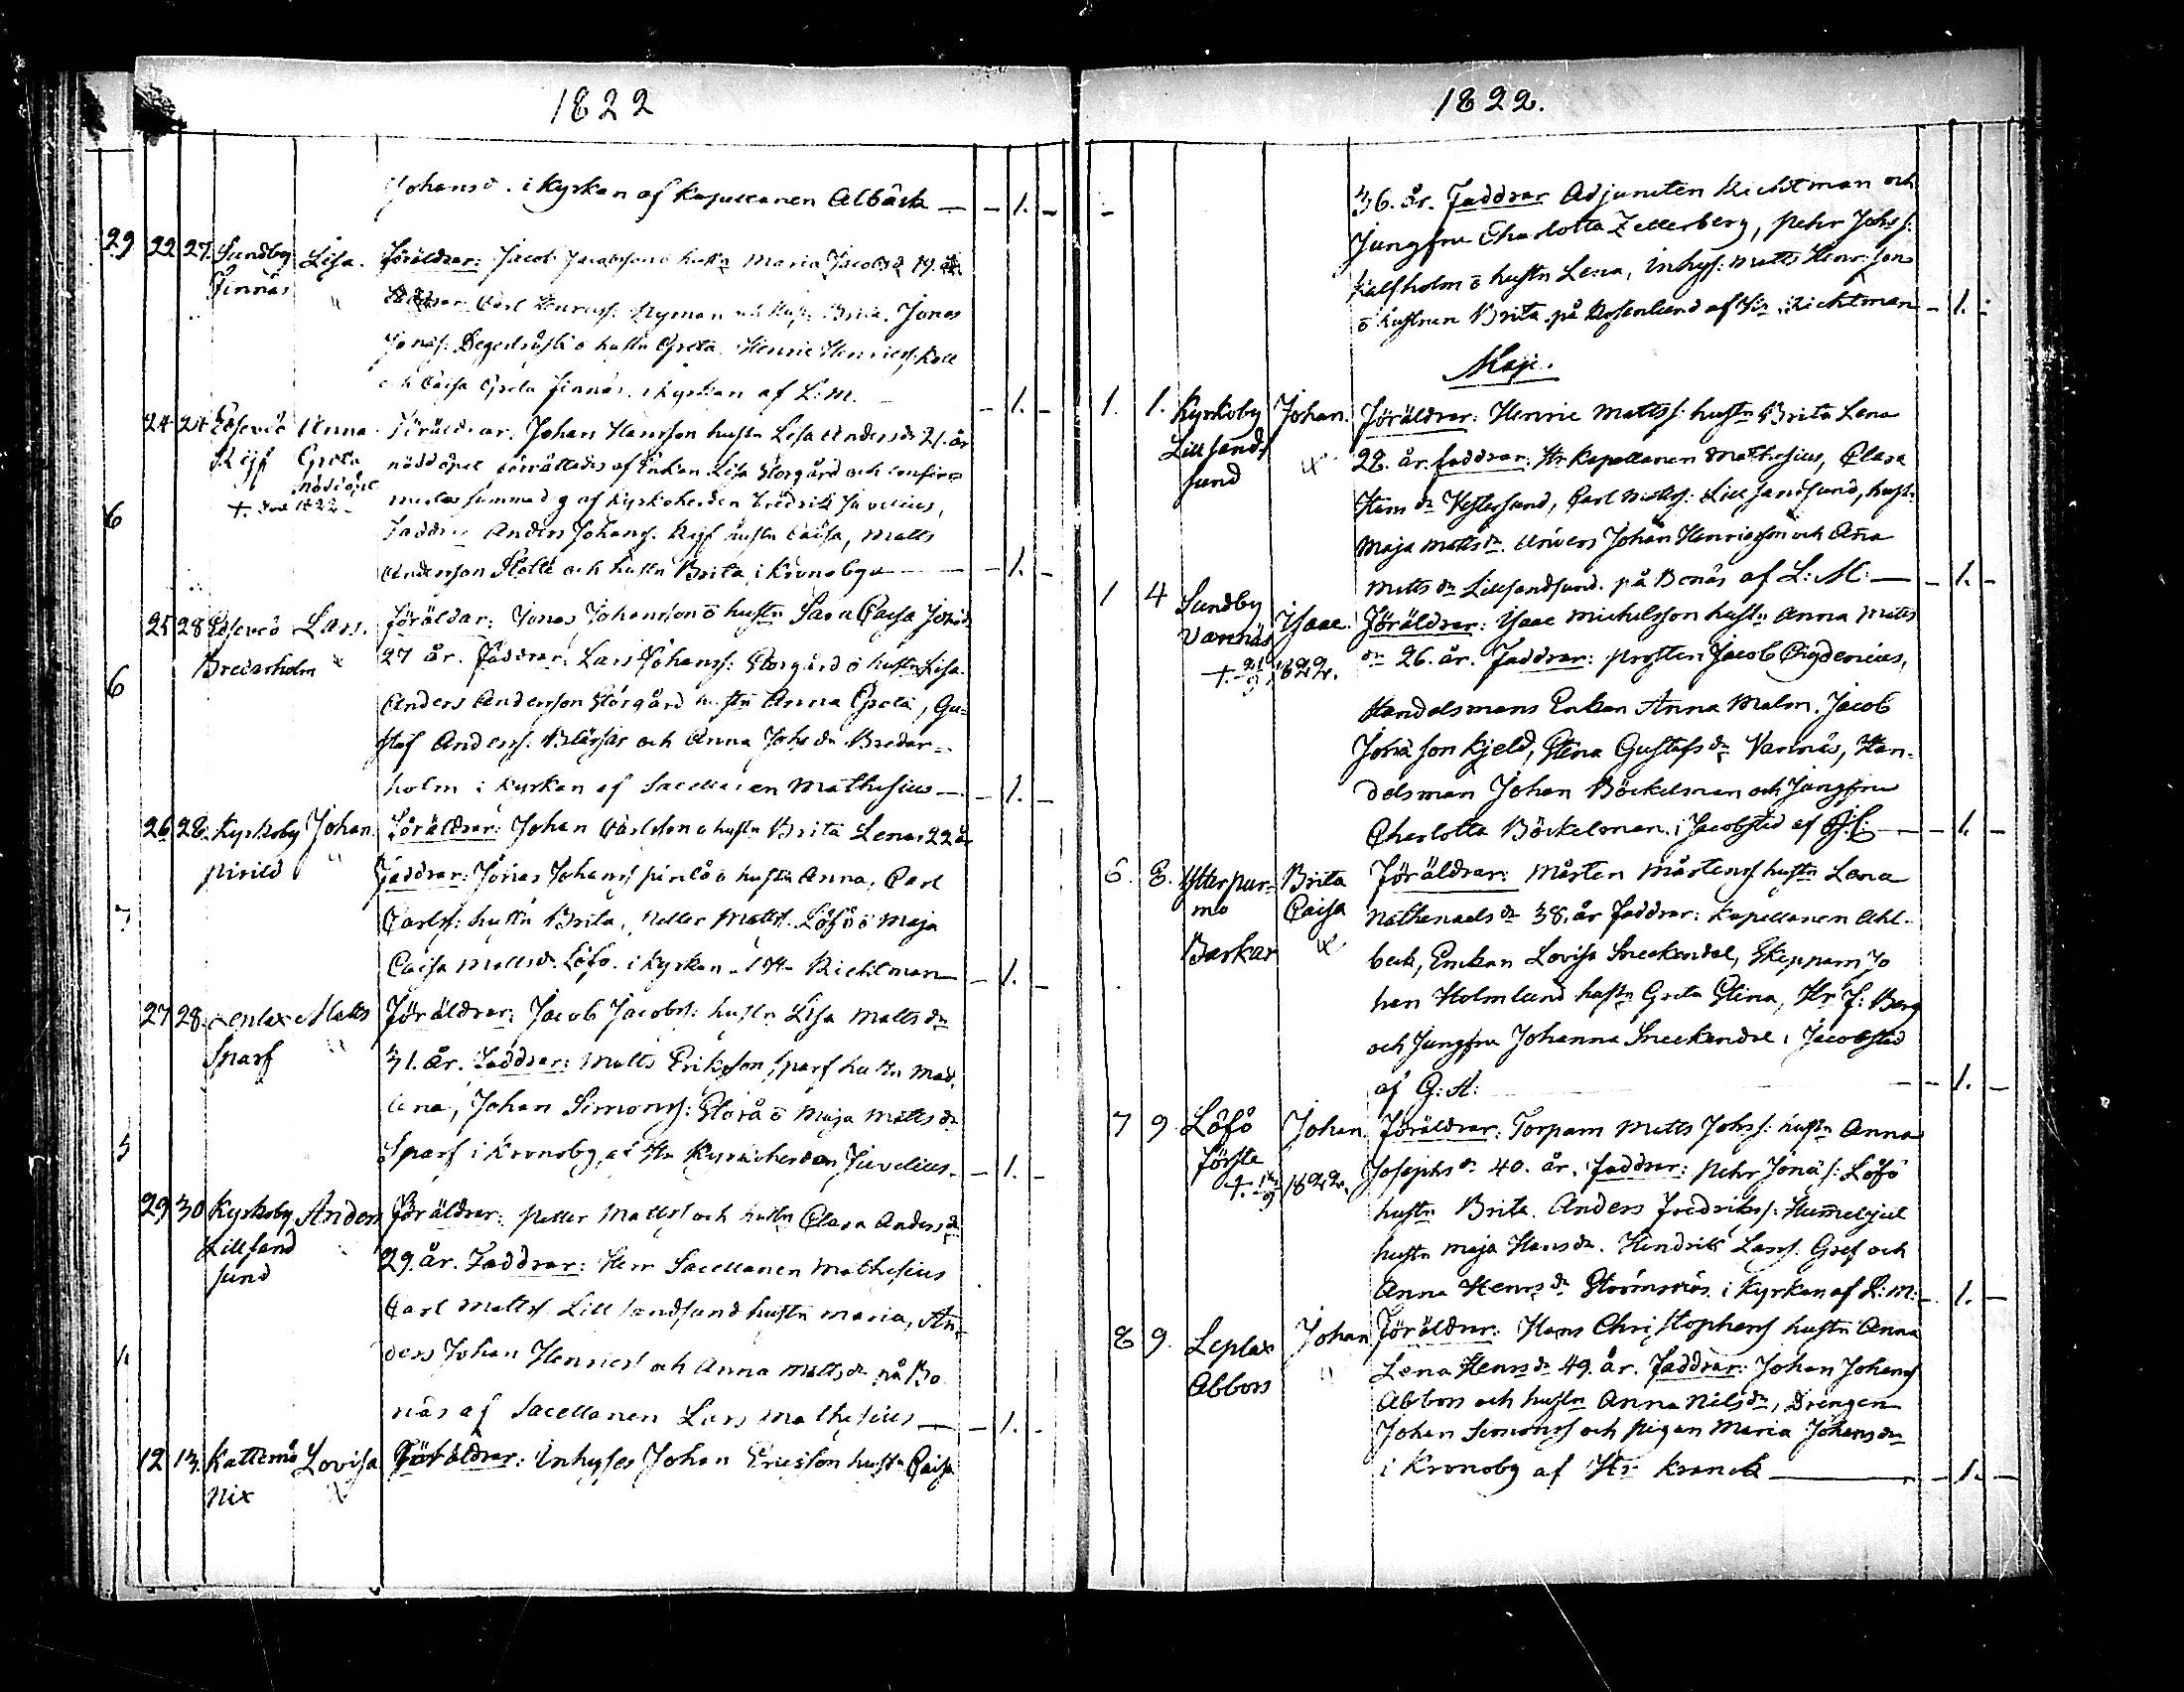 1822
Johans d. i Kyrkan af Kapellanen Albäck — - 1. -
29 22 27. Sundby Lisa. Föräldrar: Jacob Jacobsson o hustn Maria Jacobsd 19. år
Finnäs " Faddrar Carl Nyman Brita. Jonas
Jonass: o hustn Greta. Henric Henricss:
och Caisa Greta Finnäs. i Kyrkan af L: M. - 1. -
24 24 Edsevö Anna Föräldrar: Johan Hansson hustn Lisa Andersdr 21. år
Rijf Greta nöddopet förrättades af Enkan Lisa Storgård och confir=
nöddöpt af Kyrkoherden Fredrik Juvelius,
+ 1822 -
6 Faddrar Anders Johanss. Rijf hustn Caisa, Matts
Andersson Slotte och hustn Brita i Kronoby — - 1. -
25 28 Edsevö Lars. Föräldar: Jonas Johansson o hustn Sara Caisa
Bredarholm 27 år. Faddrar: Lars Johanss: Storgård o hustn Lisa.
6 Anders Andersson Storgård hustn Anna Greta, Gu=
staf Anderss: och Anna Johsdr Bredar=
holm i Kyrkan af Sacellanen Mathesius — - 1. -
26 28. Kyrkoby Johan. Föräldrar: Johan Carlsson o hustn Brita Lena 22 år
Pirilö " Faddrar: Jonas Johanss Pirilö o hustn Anna, Carl
7 Carlss: hustn Brita, Petter Matss. Löfö o Maja
Caisa Mattsdr. Löfö. i Kyrkan Richtman - 1. -
27 28. Leplax Matts Föräldrar: Jacob Jacobss: hustn Lisa Mattsdr
Sparf " 31. år. Faddrar: Matts Eriksson Sparf hustn Mad.
lena, Johan Simonss: Storå o Maja Mattsdr
5 Sparf i Kronoby, af Hr Kyrkoherden Juvelius. - 1. -
29 30 Kyrkoby Anders Föräldrar: Petter Mattss och hustn Clara Andersdr
Lillsand 29. år. Faddrar: Herr Sacellanen Mathesius
sund Carl Mattss Lillsandsund hustn Maria, An=
1. ders Johan Henricss och Anna Mattsdr på Bo
näs af Sacellanen Lars Mathesius — - 1. -
12 13. Katternö Lovisa Föräldrar: Inhyses Johan Ericsson hustn Caisa
Nix
1822.
36. år. Faddrar Adjuncten Richtman och
Jungfru Charlotta Zetterberg, Pehr Johss:
Kalfholm o hustn Lena, Inhys: Matts Henr:son
o hustrun Brita på Rosenlund af Hr Richtman - 1. -
Maji.
1. 1. Kyrkoby Johan. Föräldrar: Henric Mattss: hustn Brita Lena
Lillsand 22. år. Faddrar: Hr Kapellanen Mathesius, Clara
sund Hansdr Westersund, Carl Mattss: Lillsandsund, hust:
Maja Mattsdr. Anders Johan Henricsson och Anna
Mattsdr Lillsandsund. på Bonäs af L: M: — - 1. -
1 4 Sundby Isaac. Föräldrar: Isaac Michelsson hustn Anna Matts
Varnäs dr 26. år. Faddrar: Prosten Jacob Gigdenius,
+ 21/9 1822. Handelsmans Enkan Anna Malm. Jacob
Jonasson Kjeld, Stina Gustafsdr Varnäs, Han=
delsman Johan Böckelman och Jungfru
Charlotta Böckelman. i Jacobstad af — - 1. -
6. 8. Ytterpur= Brita Föräldrar: Mårten Mårtenss hustn Lena
mo Caisa Nathanaels dr 38. år Faddrar: Kapellanen Ahl=
Barkar beck, Enkan Lovisa Sneckendal, Skeppam Jo
han Holmlund hustn Greta Stina, Hr J: Berg
och Jungfru Johanna Sneckendal i Jacobstad
af G: A: — - 1. -
7 9. Löfö Johan. Föräldrar: Torpam Matts Johss: hustn Anna
Förste Josephsdr 40. år. Faddrar: Pehr Jonass: Löfö
+ /9 1822. hustn Brita. Anders Fredrikss: Hummelgul
hustn Maja Hansdr. Hendrik Larss. Gref och
Anna Henrsdr Strömsnäs. i Kyrkan af L: M: - 1. -
8 9. Leplax Johan Föräldrar: Hans Christophers hustn Anna
Abbors " Lena Henrsdr 49. år. Faddrar: Johan Johanss
Abbors och hustn Anna Nilsdr, Drengen
Johan Simonss och Pigan Maria Johansdr
i Kronoby af Hr Kranck — - 1. -